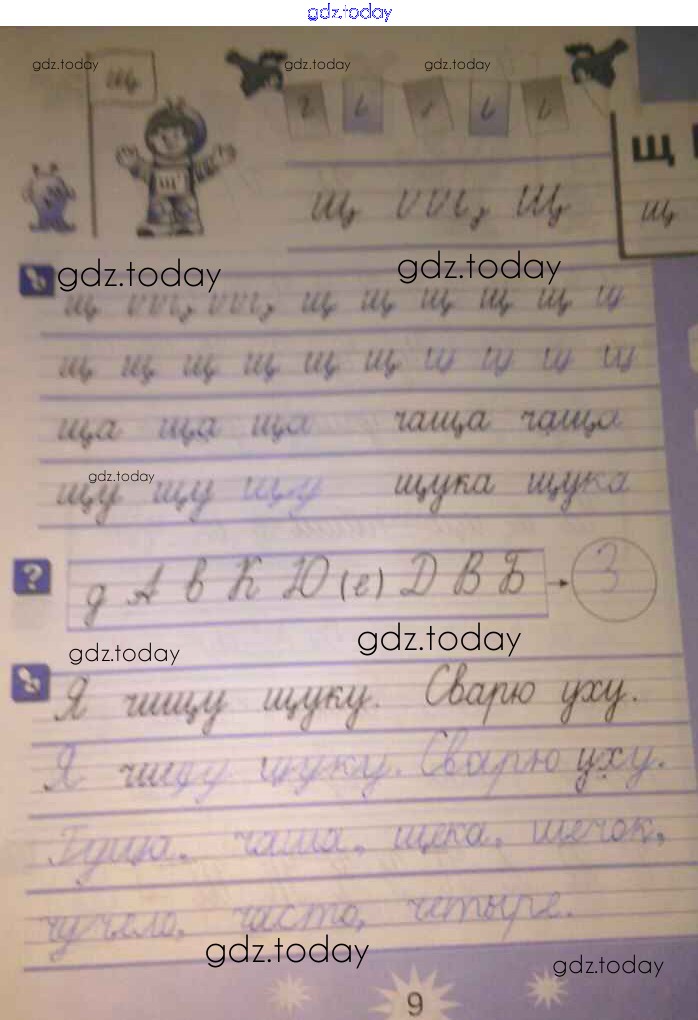 gdz.today
gdz.today gdz.today gdz.today
щ
Щ
щ щ
Щ
щ
gdz.today gdz.today
щ щ щ щ щ щ
щ щ щ щ щ щ щ щ щ щ
ща ща ща чаща чаща
gdz.today
щу щу щу щука щука
? д А в К Ю (е) Д В Б → 3
gdz.today
gdz.today
Я чищу щуку. Сварю уху.
Я чищу щуку. Сварю уху.
чаща, щека, щенок,
чучело, часто, четыре.
gdz.today
gdz.today
9